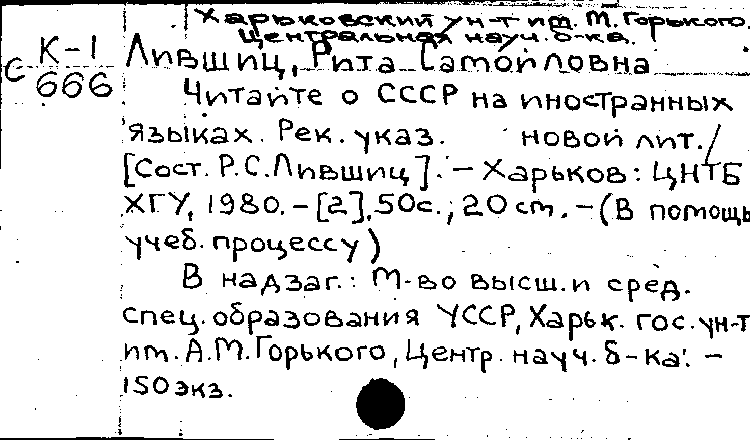 Харьковский ун-т им. М. Горького.
Центральная науч. б-ка.
К-1
С 666
Лившиц, Рита Самойловна
Читайте о СССР на иностранных
языках. Рек. указ. новой лит. /
[Сост. Р.С.Лившиц]. - Харьков: ЦНТБ
ХГУ, 1980. - [2], 50с.; 20 cm. - (В помощь
учеб. процессу)
В надзаг.: М-во высш. и сред.
спец. образования УССР, Харьк. гос. ун-т
им. А.М.Горького, Центр. науч. б-ка. -
150 экз.